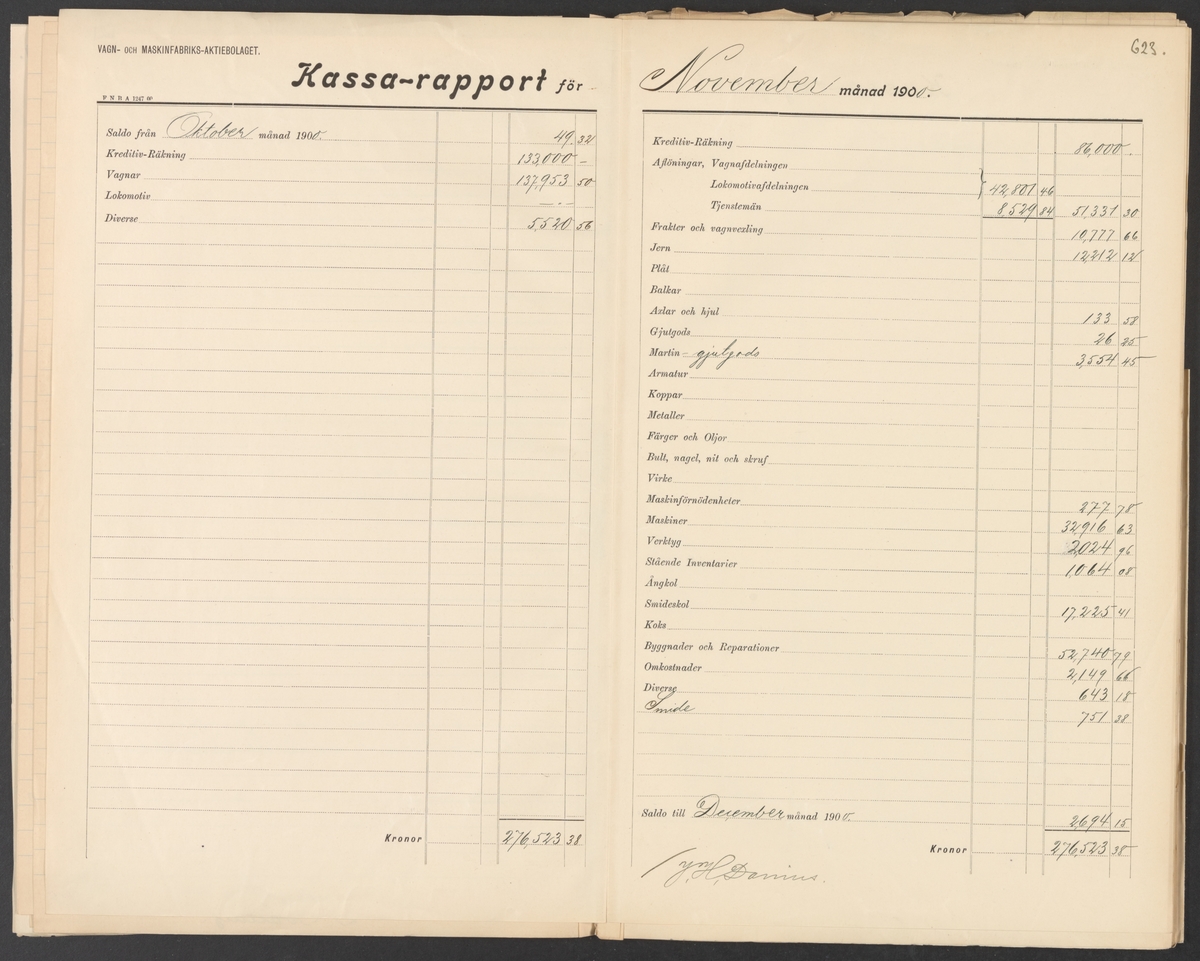 VAGN- OCH MASKINFABRIKS-AKTIEBOLAGET.
Kassa-rapport för
F N B A 1247 00
Saldo från Oktober månad 1900. 49 32
Kreditiv-Räkning 133,000 –
Vagnar 137,953 50
Lokomotiv — . –
Diverse 5,520 56
Kronor 276,523 38
623.
November månad 1900.
Kreditiv-Räkning 86,000 -
Aflöningar, Vagnafdelningen
Lokomotivafdelningen } 42,801 46
Tjenstemän 8,529 84 51,331 30
Frakter och vagnvexling 10,777 66
Jern 12,212 12
Plåt
Balkar
Axlar och hjul 133 58
Gjutgods 26 25
Martin-gjutgods 3,554 45
Armatur
Koppar
Metaller
Färger och Oljor
Bult, nagel, nit och skruf
Virke
Maskinförnödenheter 277 78
Maskiner 32,916 63
Verktyg 2,024 96
Stående Inventarier 1,064 08
Ångkol
Smideskol 17,225 41
Koks
Byggnader och Reparationer 52,740 79
Omkostnader 2,149 66
Diverse 643 18
Smide 751 38
Saldo till December månad 1900. 2,694 15
Kronor 276,523 38